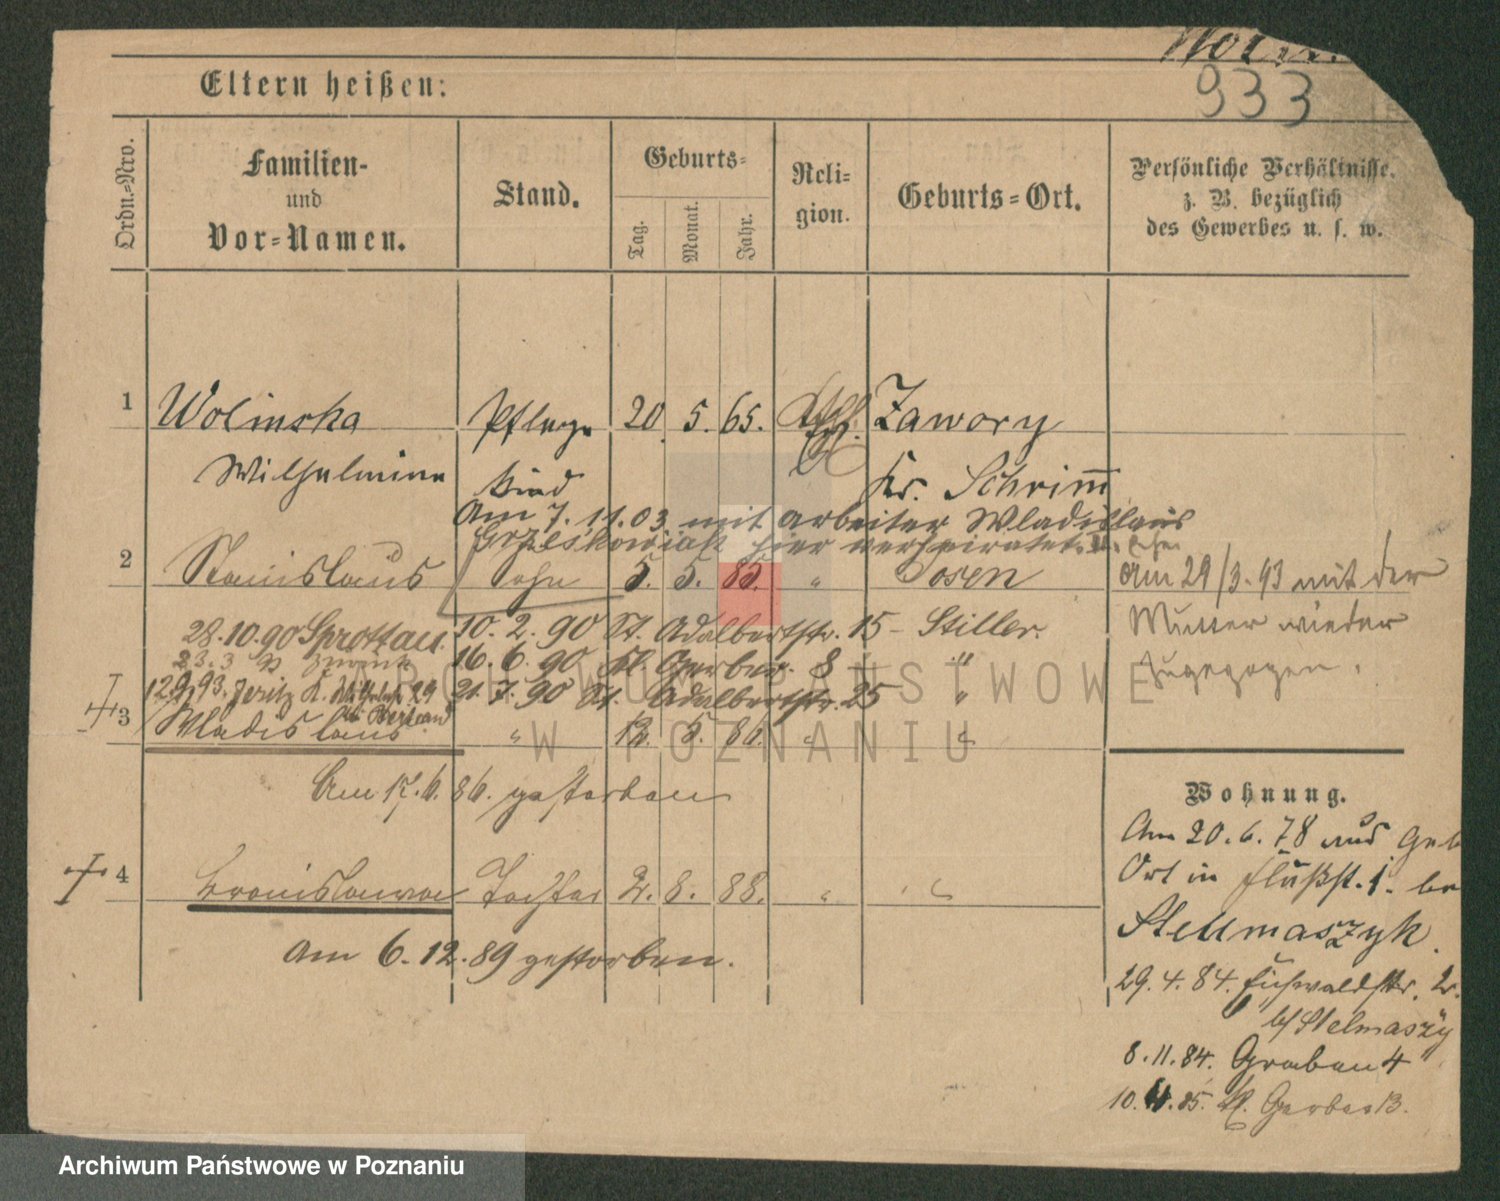 933
Eltern heißen:
Ordn.-Nro.
Familien-
und
Vor-Namen.
Stand.
Geburts-
Tag.
Monat.
Jahr.
Reli-
gion.
Geburts-Ort.
Persönliche Verhältnisse.
z. B. bezüglich
des Gewerbes u. s. w.
1 Wolinska Pflege 20. 5. 65. kath. Zawory
Wilhelmine kind Kr. Schrimm
Am 7.11.03 mit Arbeiter Wladislaus
Grzeskowiak hier verheiratet.
2 Stanislaus Sohn 5. 5. 85. " Posen
Am 29/3.93 mit der
Mutter wieder
zugezogen.
28.10.90 Sprottau
10. 2. 90 St. Adalbertstr. 15 - Stiller.
23.3 93 zurück
16. 6. 90 Kl. Gerber. 8 "
12.9.93. Jeritz
21. 7. 90 St. Adalbertstr. 25 "
3 Wladislaus " 12. 5. 86. " "
Am 17.6.86. gestorben
4 Bronislawa Tochter 2. 8. 88. " "
Am 6.12.89 gestorben.
Wohnung.
Am 20.6.78 aus Geb
Ort in Flußst. 1. be
Stellmaszyk.
29.4.84. Eichwaldstr. 2.
b/ Stelmaszy
8.11.84. Graben 4
10. 85. Kl. Gerber 13.
ARCHIWUM PAŃSTWOWE
W POZNANIU
Archiwum Państwowe w Poznaniu